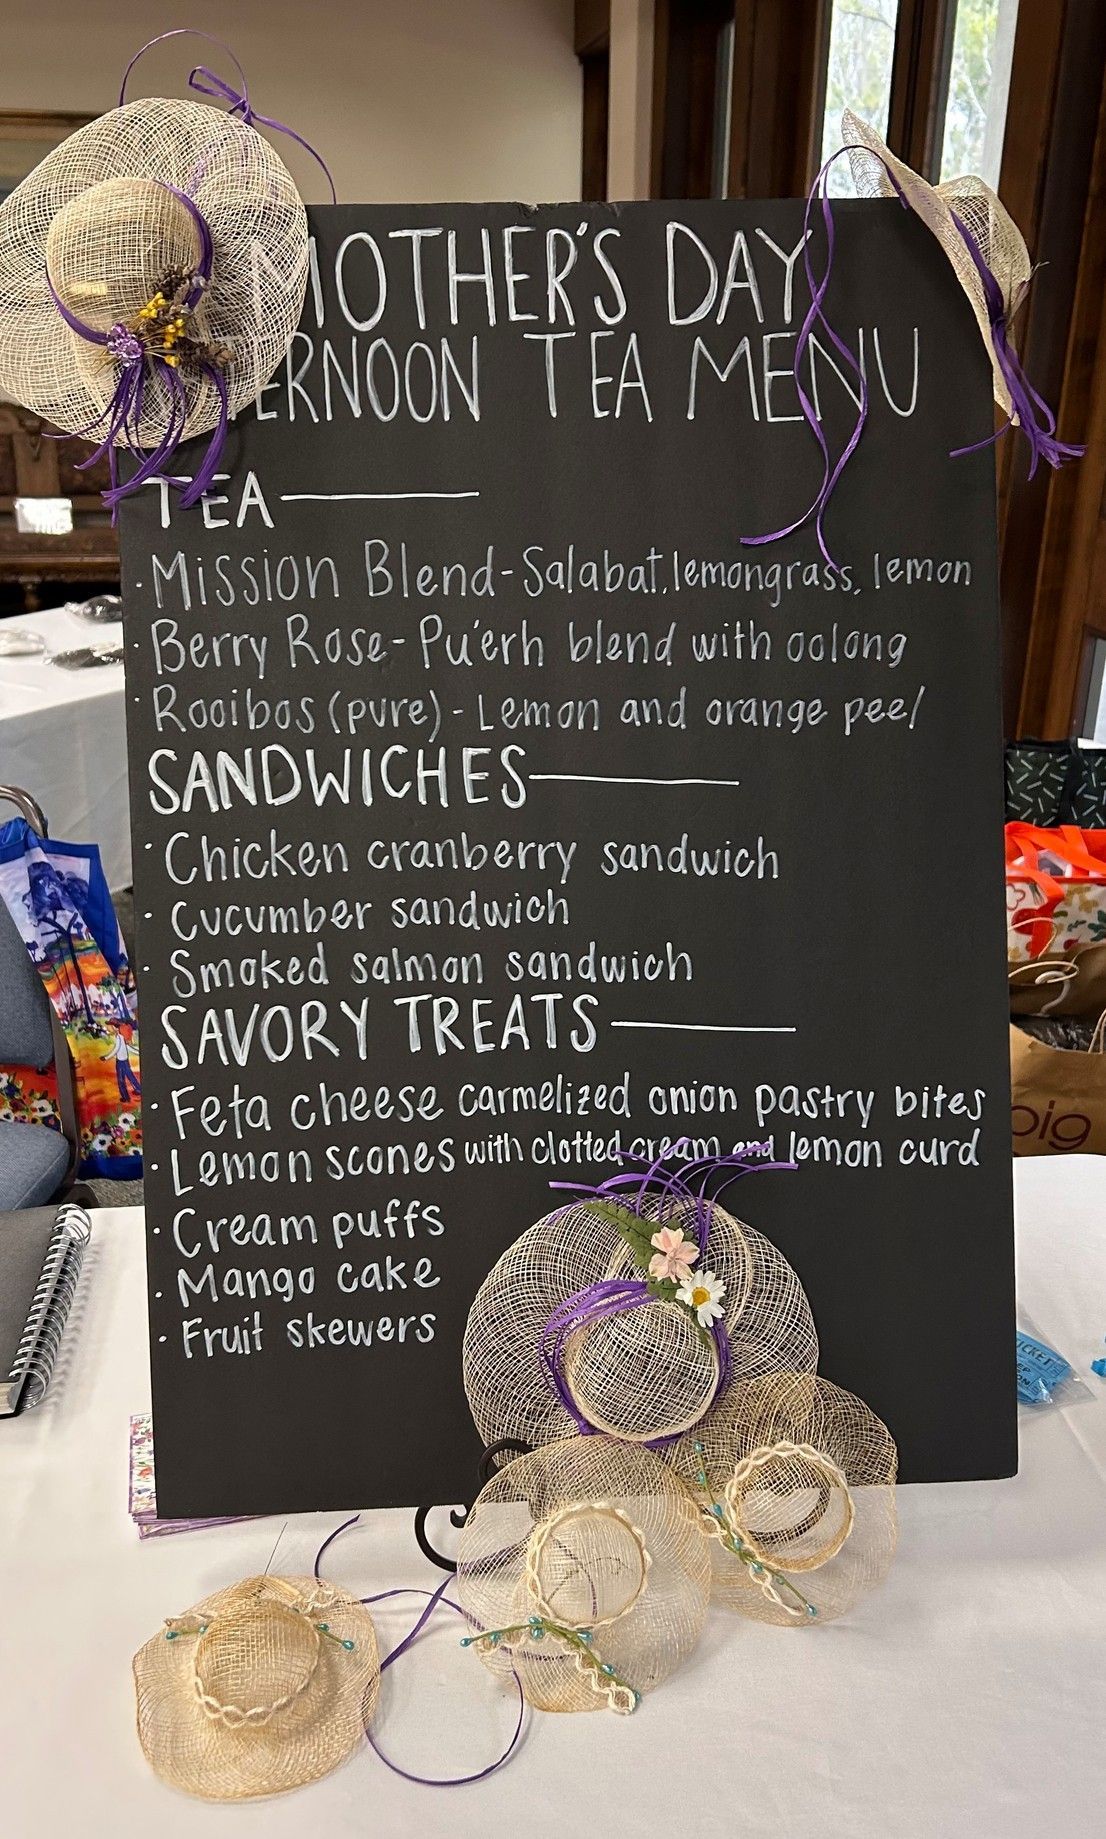 MOTHER'S DAY
ERNOON TEA MENU
TEA
· Mission Blend - Salabat, lemongrass, lemon
· Berry Rose - Pu'erh blend with oolong
· Rooibos (pure) - Lemon and orange peel
SANDWICHES
· Chicken cranberry sandwich
· Cucumber sandwich
· Smoked salmon sandwich
SAVORY TREATS
· Feta cheese carmelized onion pastry bites
· Lemon scones with clotted cream and lemon curd
· Cream puffs
· Mango cake
· Fruit skewers